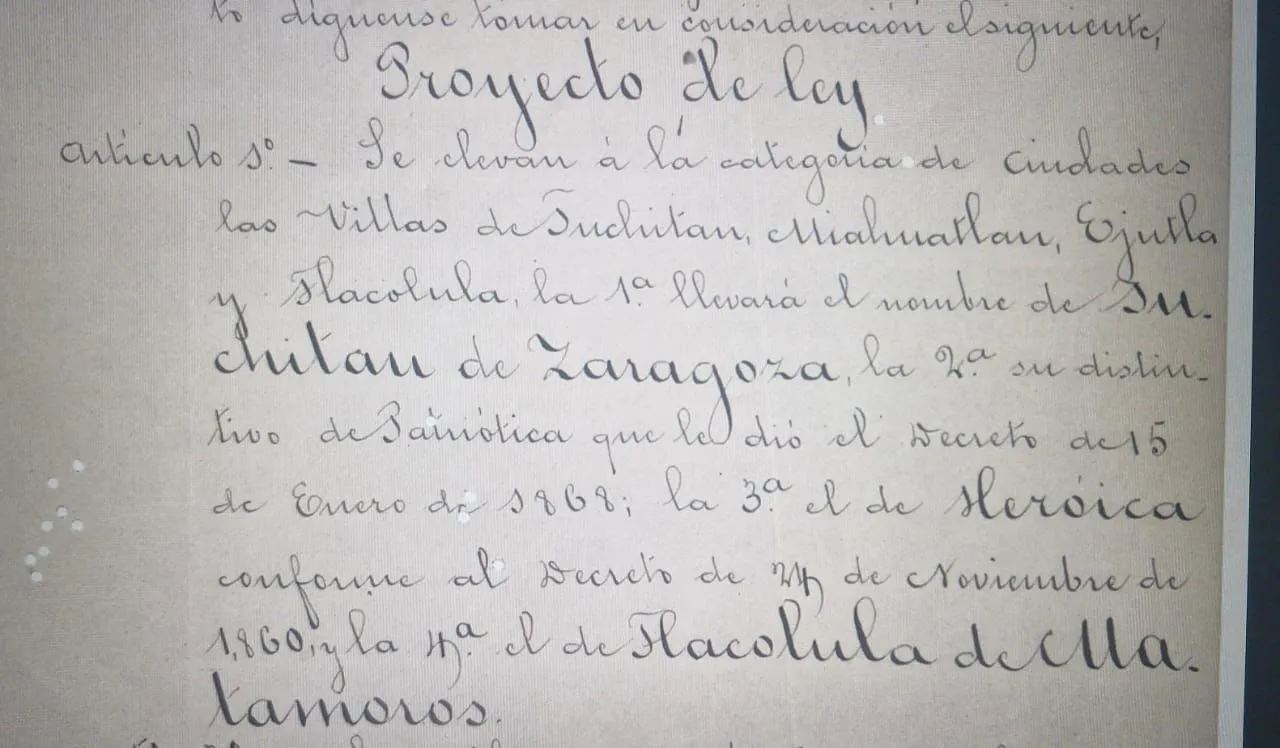 to dignense tomar en consideración el siguiente,
Proyecto de ley
articulo 1º. - Se elevan á la categoria de Ciudades
las Villas de Juchitan, Miahuatlan, Ejutla
y Tlacolula, la 1ª llevará el nombre de Ju-
chitan de Zaragoza, la 2ª su distin-
tivo de Patriótica que le dió el Decreto de 15
de Enero de 1868; la 3ª el de Heróica
conforme al Decreto de 24 de Noviembre de
1,860, y la 4ª el de Tlacolula de Ma-
tamoros.